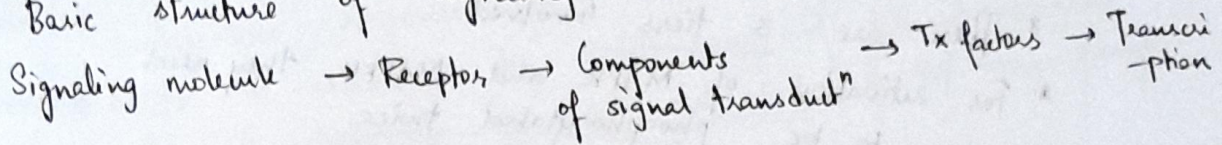 Basic structure of
Signaling molecule → Receptor → Components of signal transductⁿ → Tx factors → Transcri-ption